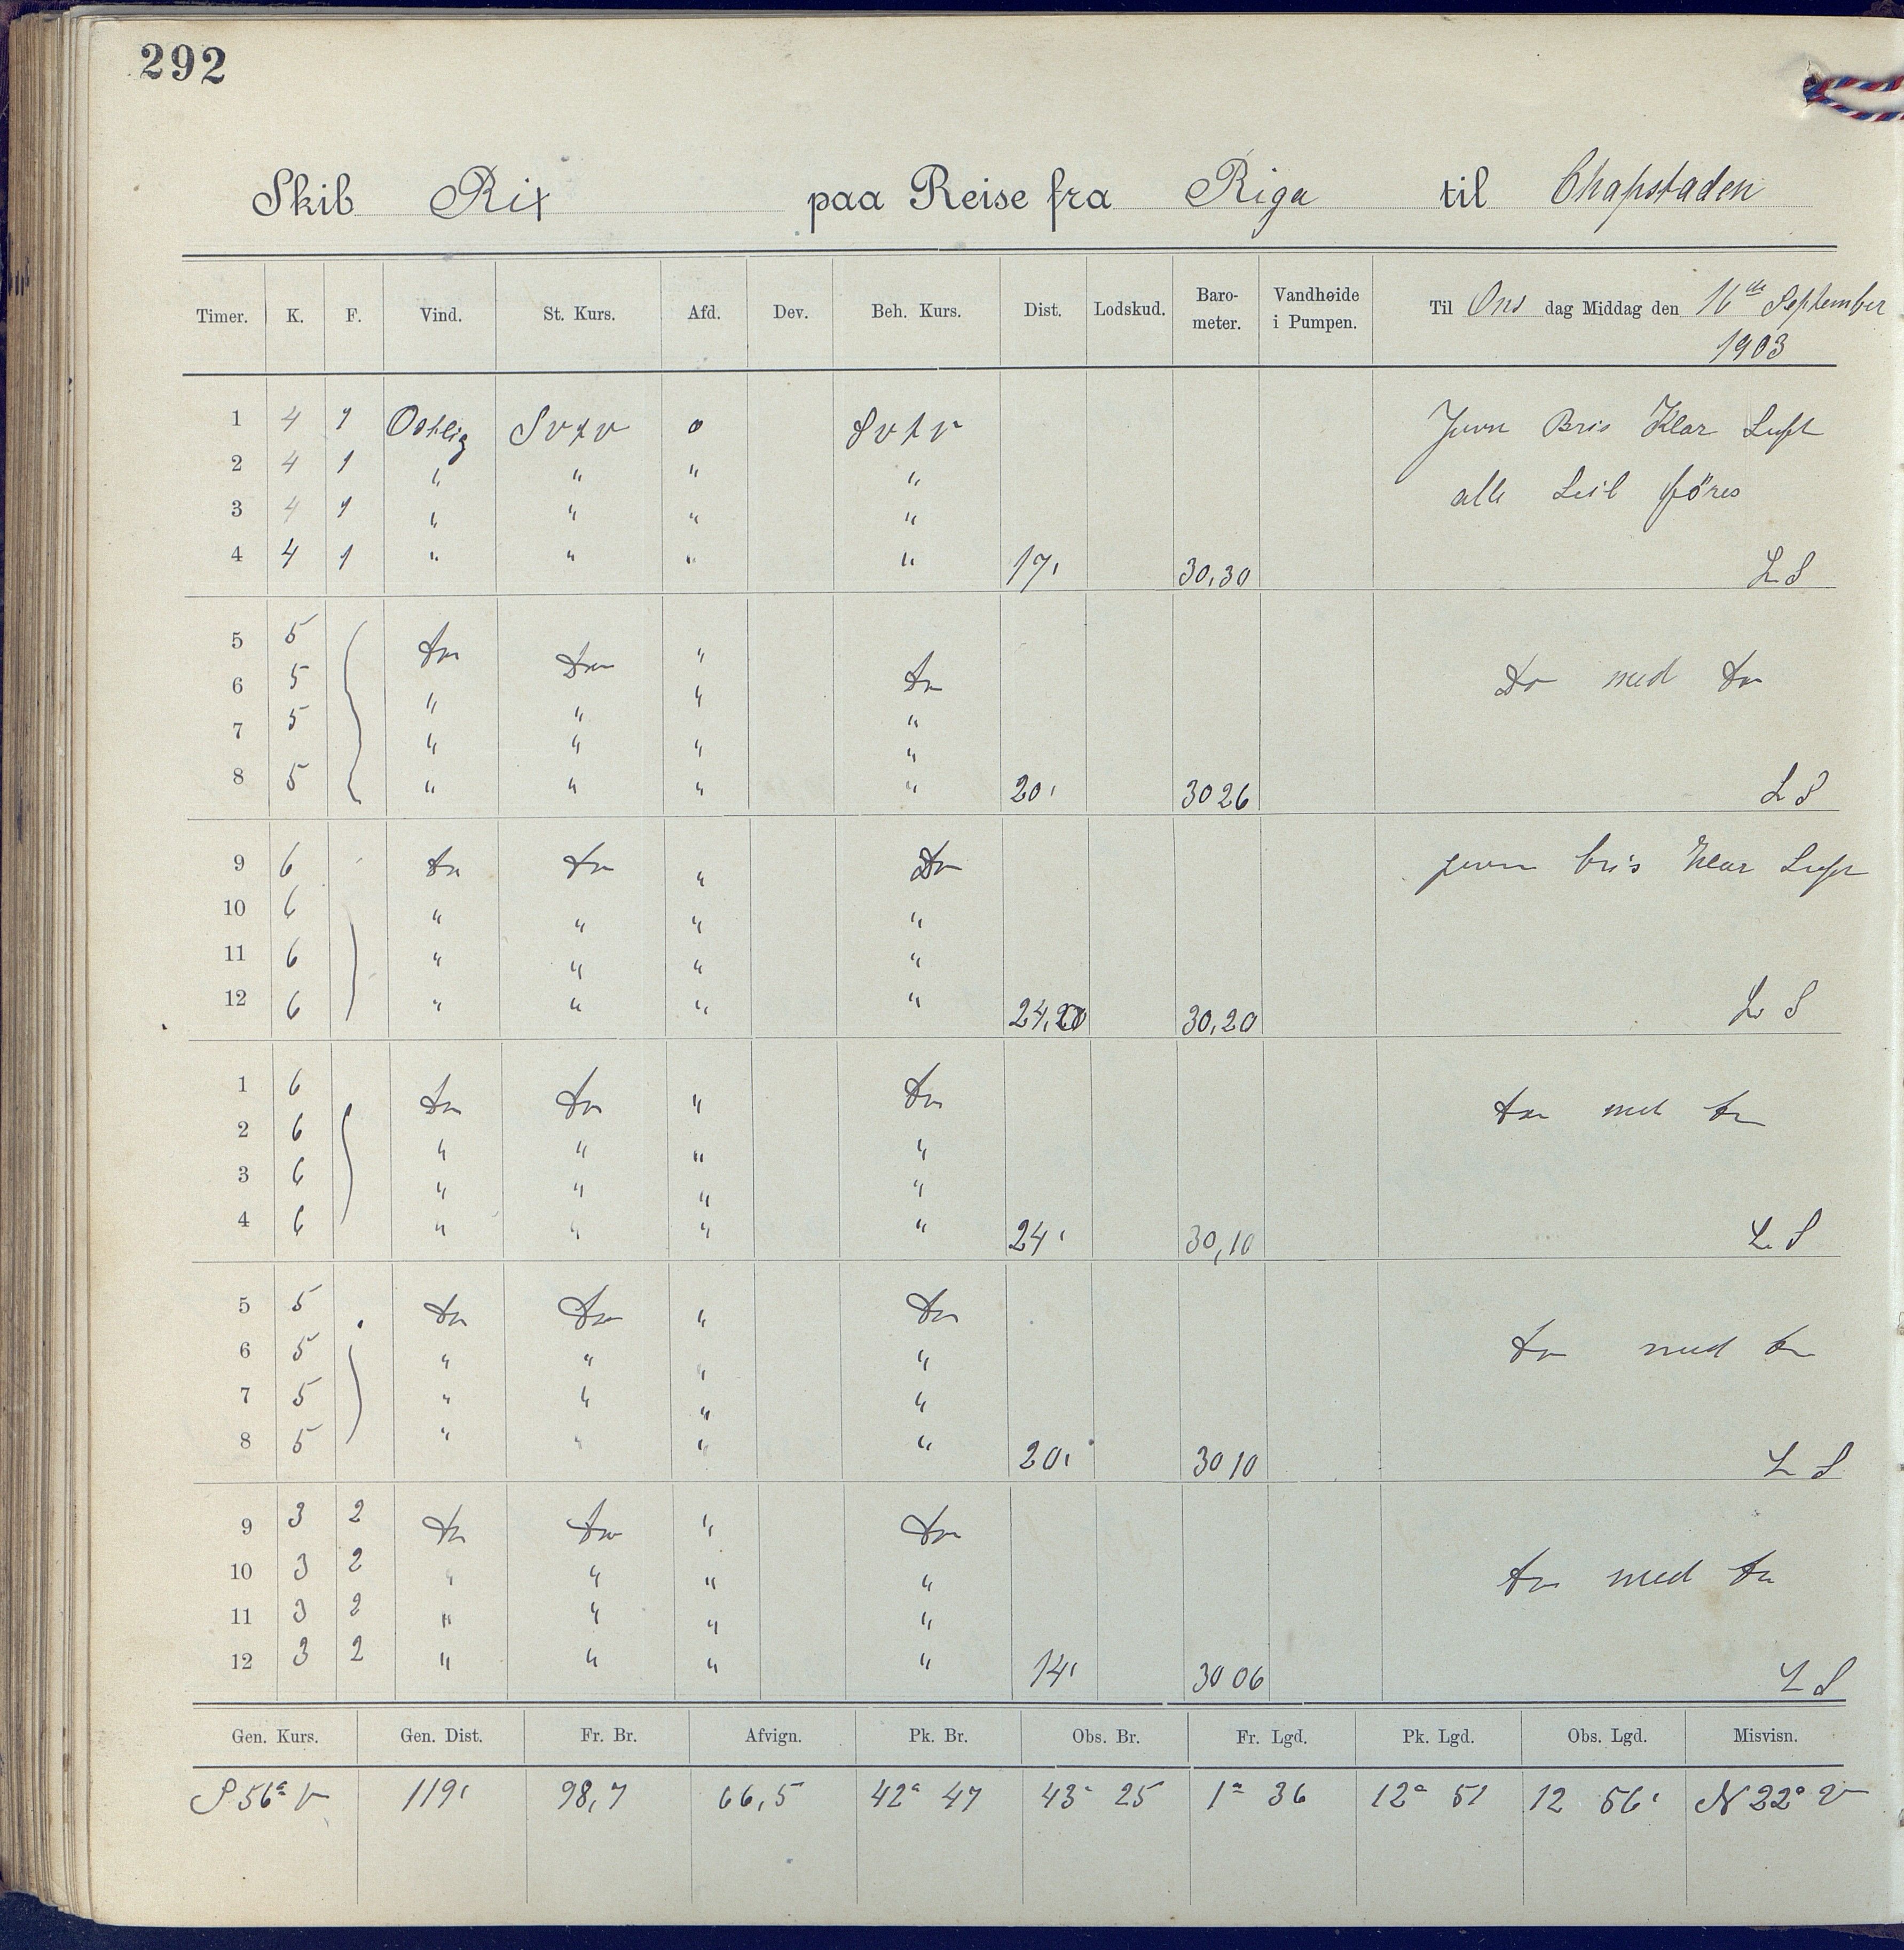 292
Skib Rix paa Reise fra Riga til Chapstaden
Timer. K. F. Vind. St. Kurs. Afd. Dev. Beh. Kurs. Dist. Lodskud. Baro-meter. Vandhøide i Pumpen. Til Ons dag Middag den 16de September
1903
1 4 1 Ostlig SvtV 0 SvtV Jevn Bris Klar Luft
2 4 1 " " " " alle Seil föres
3 4 1 " " " "
4 4 1 " " " " 17, 30,30 L S
5 5 do do " do
6 5 " " " " do med do
7 5 " " " "
8 5 " " " " 20, 3026 L S
9 6 do do " do jevn bris klar Luft
10 6 " " " "
11 6 " " " "
12 6 " " " " 24, 30,20 L S
1 6 do do " do do med do
2 6 " " " "
3 6 " " " "
4 6 " " " " 24, 30,10 L S
5 5 do do " do
6 5 " " " " do med do
7 5 " " " "
8 5 " " " " 20, 3010 L S
9 3 2 do do " do
10 3 2 " " " " do med do
11 3 2 " " " "
12 3 2 " " " " 14, 3006 L S
Gen. Kurs. Gen. Dist. Fr. Br. Afvign. Pk. Br. Obs. Br. Fr. Lgd. Pk. Lgd. Obs. Lgd. Misvisn.
S 56° V 119, 98,7 66,5 42° 47 43° 25 1° 36 12° 51 12 56, N 22° V